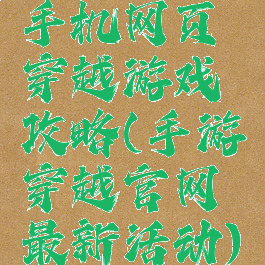 手机网页
穿越游戏
攻略(手游
穿越官网
最新活动)